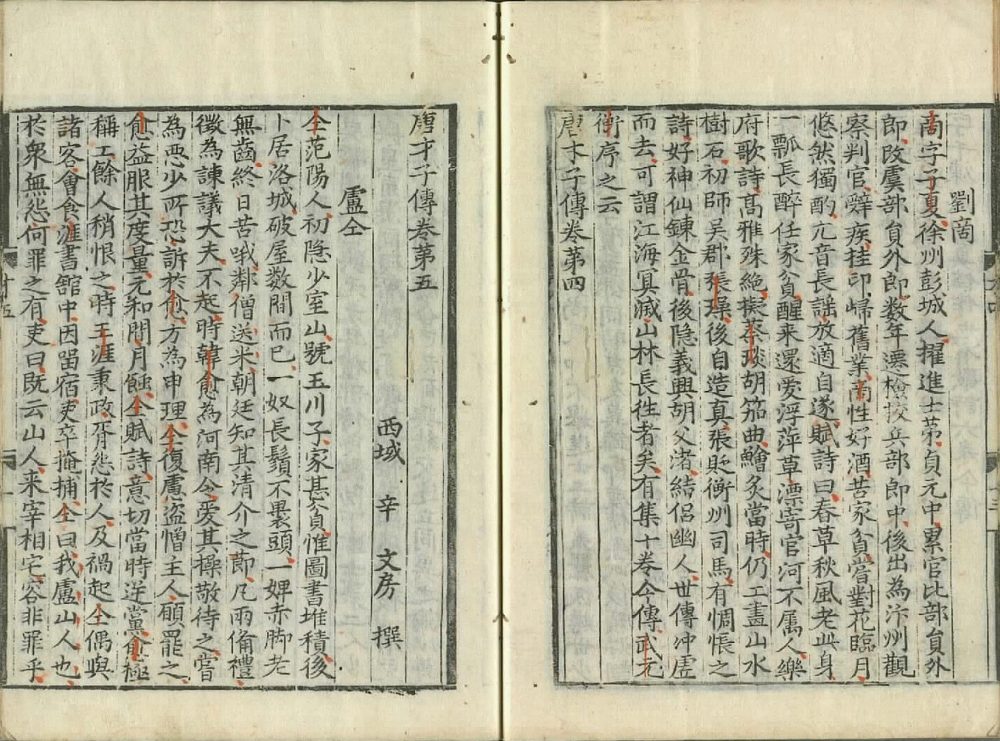 劉商
商字子夏徐州彭城人擢進士第貞元中累官比部員外
郎改虞部員外郎数年遷檢挍兵部郎中後出為汴州觀
察判官辤疾挂印歸舊業商性好酒苦家貧嘗對花臨月
悠然獨酌亢音長謡放適自遂賦詩曰春草秋風老此身
一瓢長醉任家貧醒來還愛浮萍草漂寄官河不属人樂
府歌詩髙雅殊絶擬蔡琰胡笳曲鱠炙當時仍工畫山水
樹石初師吳郡張璪後自造真張貶衡州司馬有惆悵之
詩好神仙鍊金骨後隐義興胡父渚結侣幽人世傳冲虚
而去可謂江海冥滅山林長徃者矣有集十卷今傳武元
衡序之云
唐才子傳卷第四
唐才子傳卷第五
西域 辛 文房 撰
盧仝
仝范陽人初隐少室山號玉川子家甚貧惟圖書堆積後
卜居洛城破屋数間而已一奴長鬚不褁頭一婢赤脚老
無齒終日苦哦鄰僧送米朝廷知其清介之節凡兩俻禮
徴為諫議大夫不起時韓愈為河南令愛其操敬待之嘗
為悪少所恐訴於愈方為申理仝復慮盗憎主人願罷之
愈益服其度量元和間月蝕仝賦詩意切當時逆黨愈極
稱工餘人稍恨之時王涯秉政胥怨於人及禍起仝偶與
諸客會食涯書舘中因畱宿吏卒掩捕仝曰我盧山人也
於衆無怨何罪之有吏曰既云山人来宰相宅容非罪乎